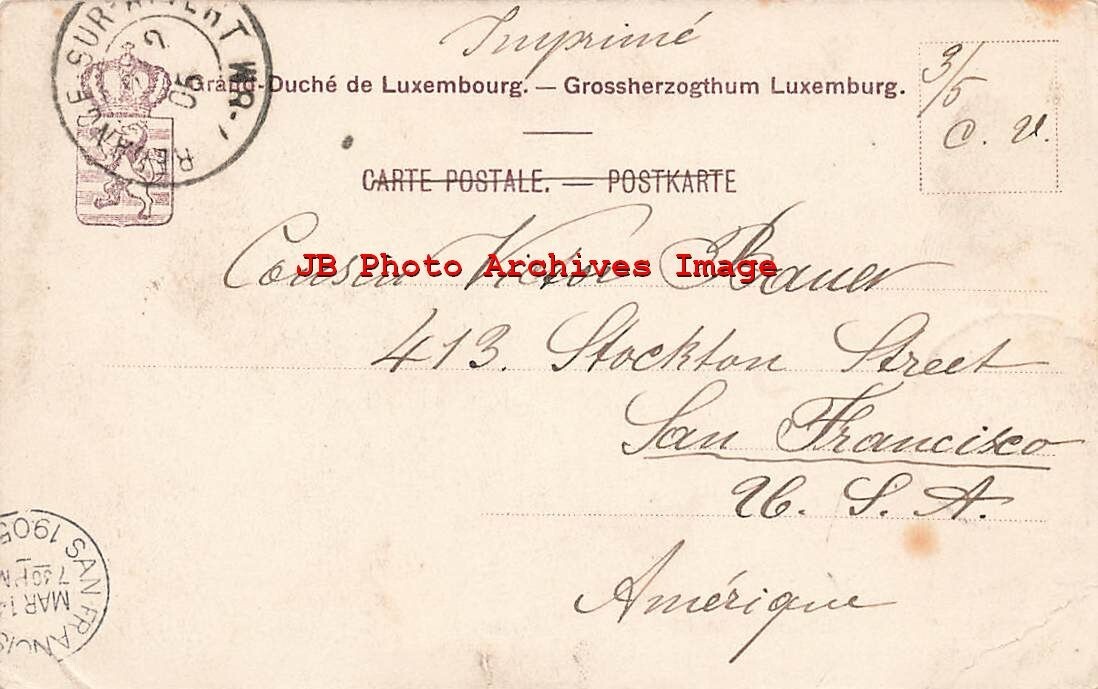 Imprimé
Grand-Duché de Luxembourg. — Grossherzogthum Luxemburg.
3/5
C. V.
CARTE POSTALE. — POSTKARTE
JB Photo Archives Image
Cousin Victor Bauer
413. Stockton Street
San Francisco
U. S. A.
Amérique
SAN FRANCIS
MAR 1
7 30 PM
1905